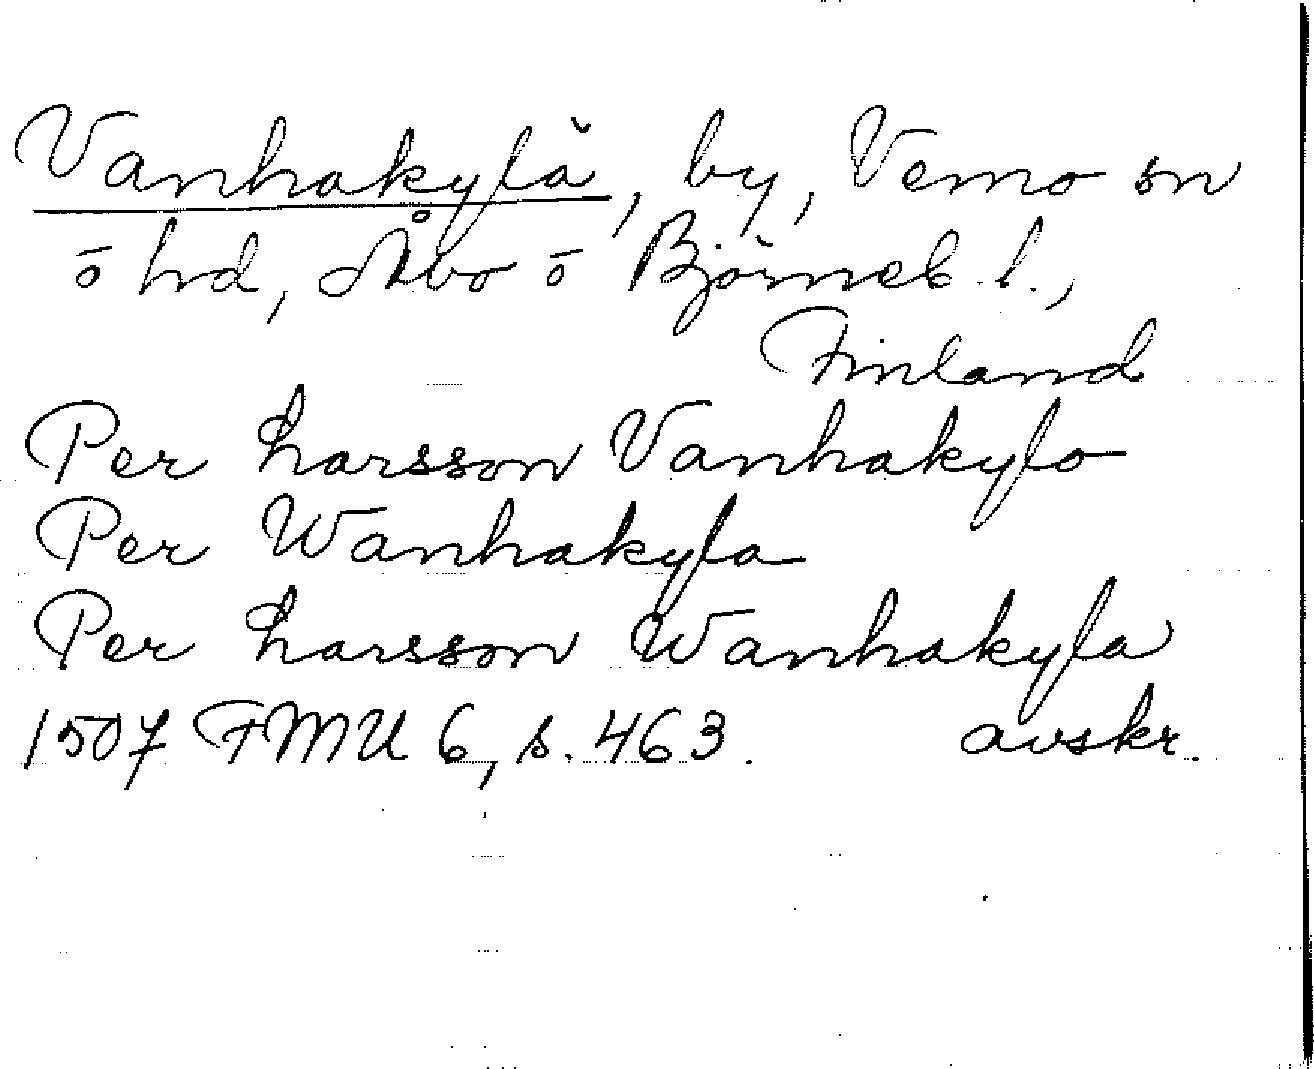 Vanhakylä, by, Vemo sn
o hd, Åbo o Björneb. l.,
Finland
Per Larsson Vanhakylo
Per Wanhakyla
Per Larsson Wanhakyla
1507 FMU 6, s. 463. avskr.